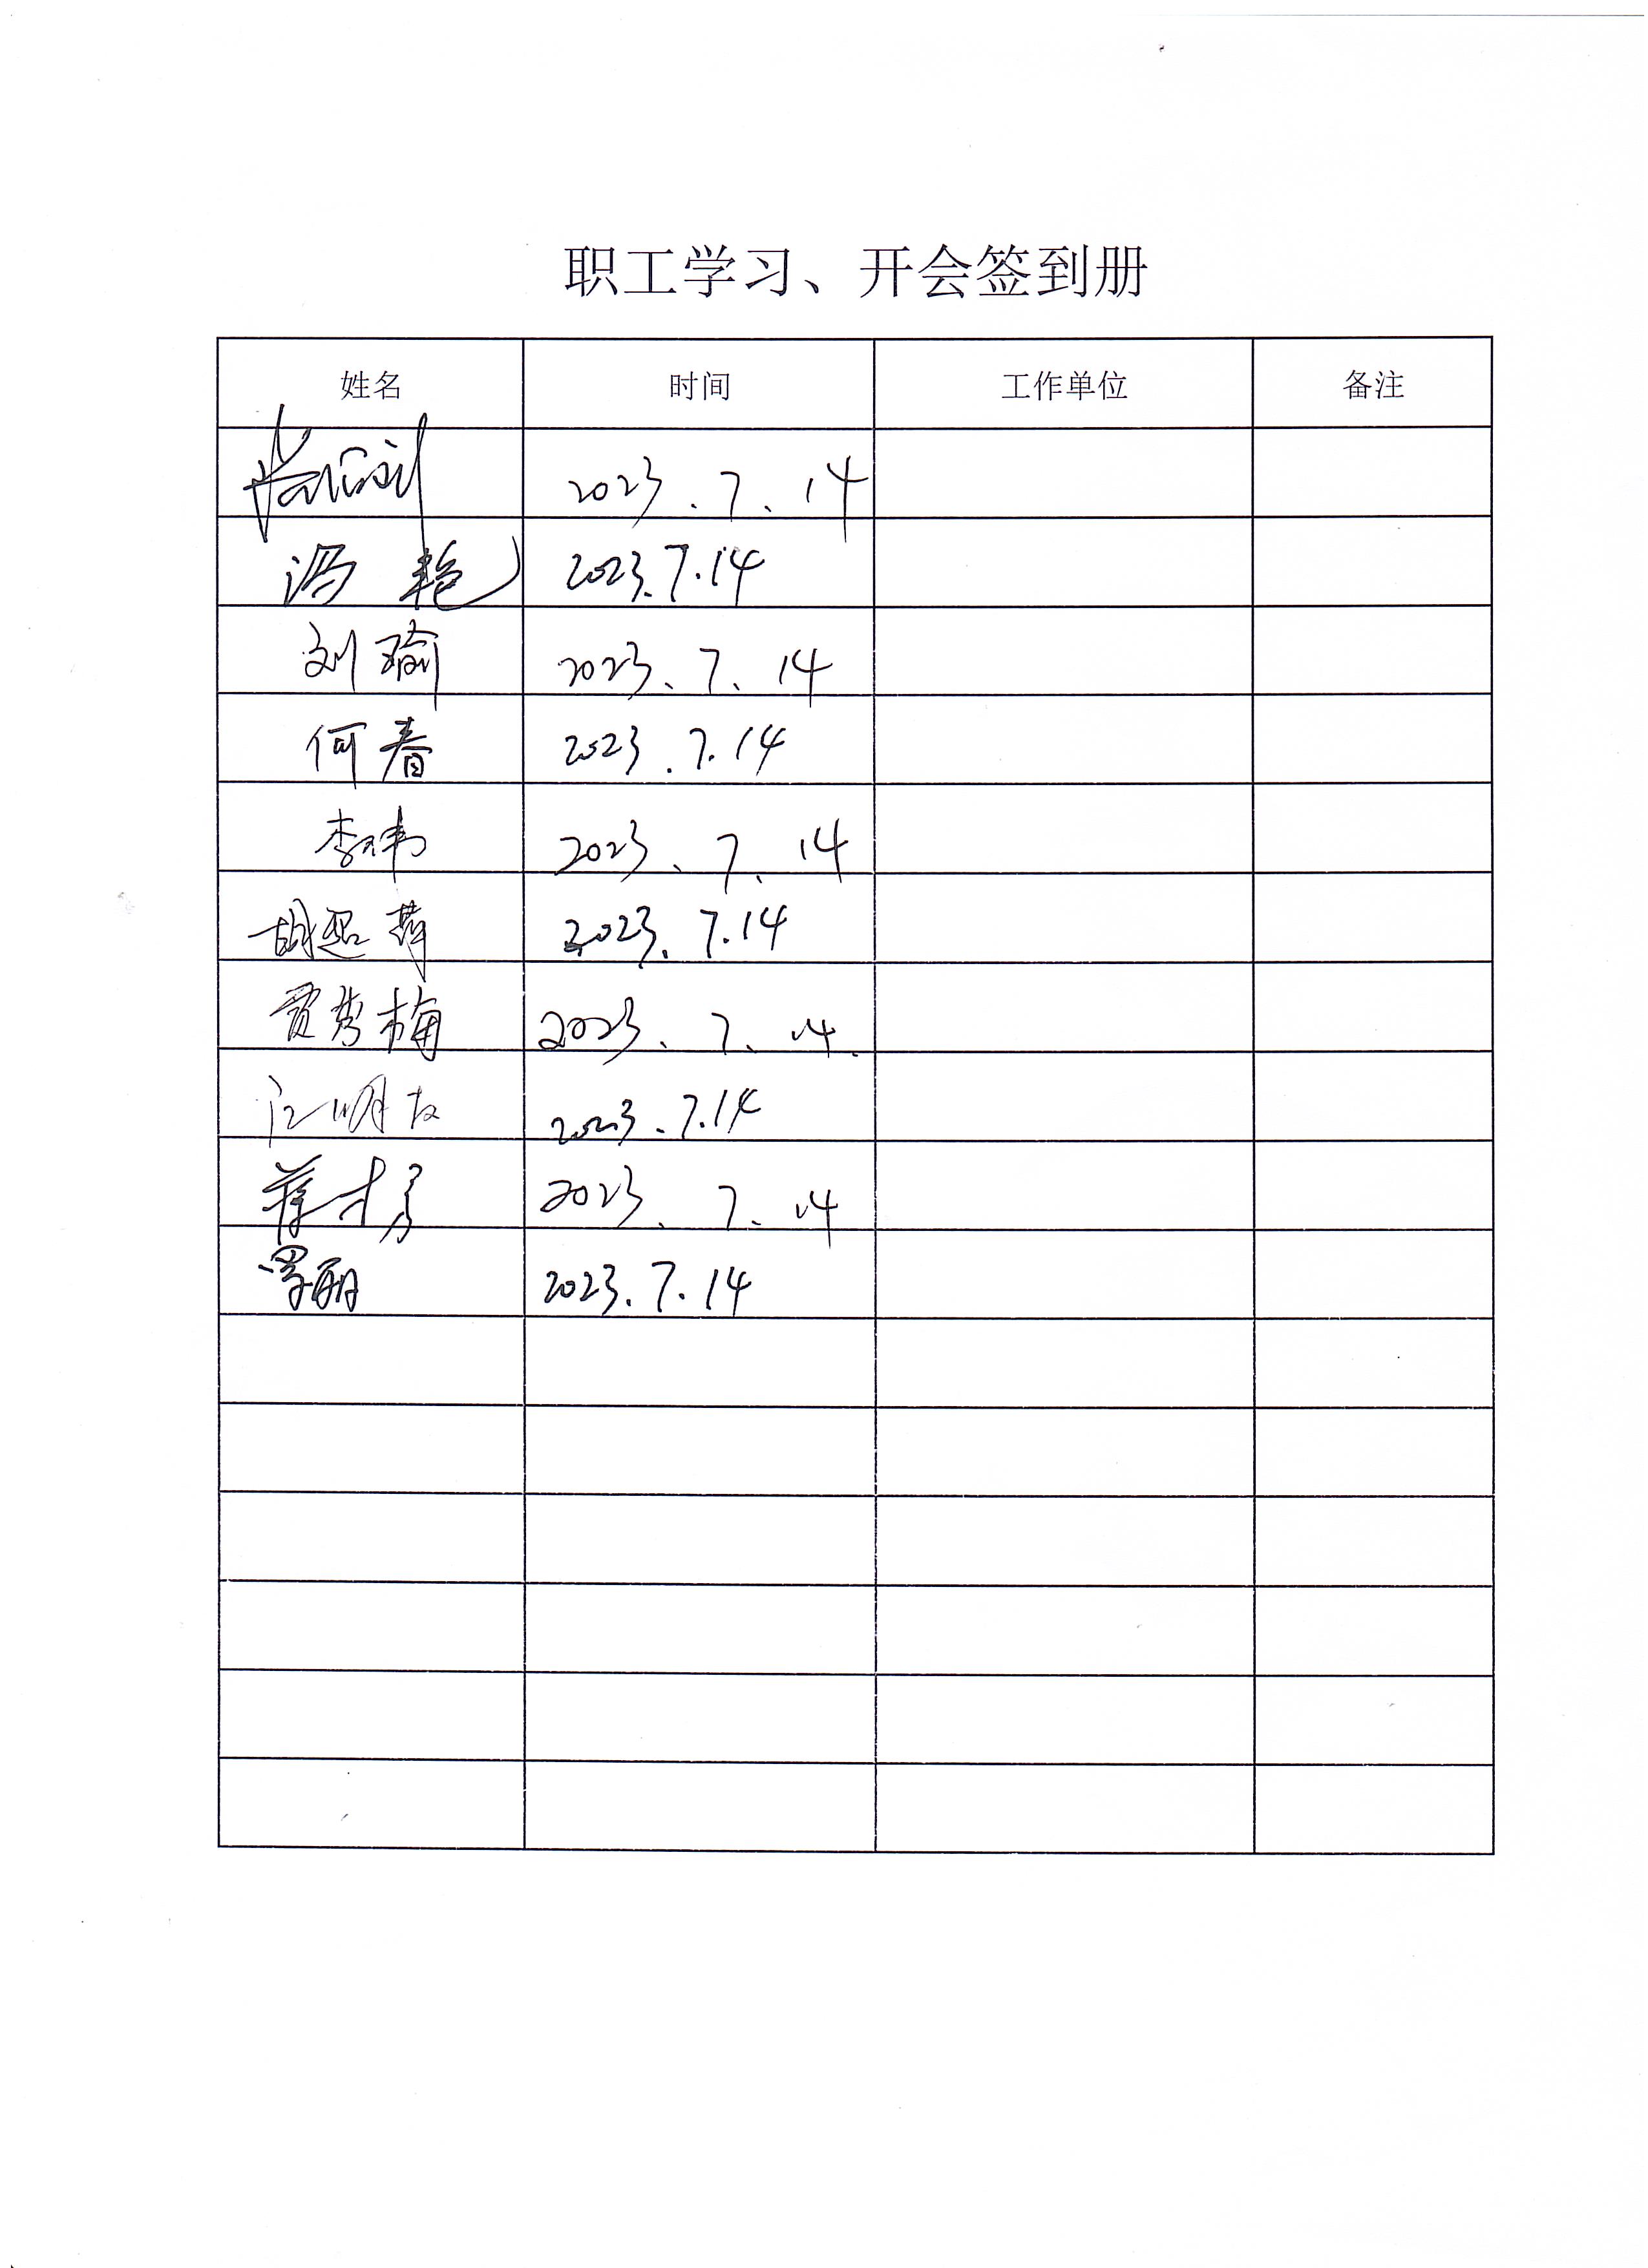 职工学习、开会签到册
姓名 时间 工作单位 备注
2023.7.14
冯艳 2023.7.14
刘瑜 2023.7.14
何春 2023.7.14
李玮 2023.7.14
胡超萍 2023.7.14
贾秀梅 2023.7.14
江明友 2023.7.14
蒋才勇 2023.7.14
罗丽 2023.7.14